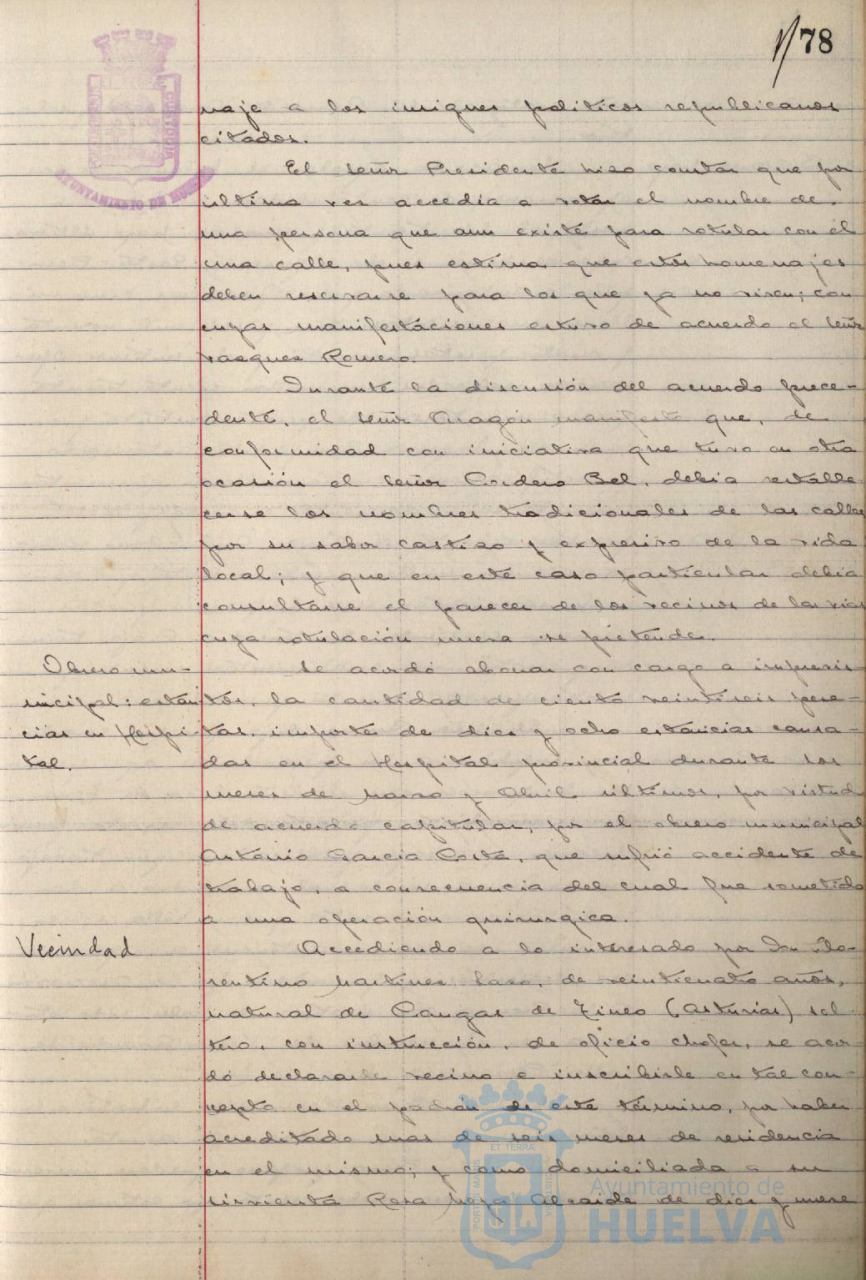 78
naje a los insignes políticos republicanos
citados.
El señor Presidente hizo constar que por
última vez accedía a votar el nombre de
una persona que aun existe para rotular con él
una calle, pues estima que estos homenajes
deben reservarse para los que ya no viven; con
cuyas manifestaciones estuvo de acuerdo el señor
Vasques Romero.
Durante la discusión del acuerdo prece-
dente, el señor Aragón manifestó que, de
conformidad con iniciativa que tuvo en otra
ocasión el señor Cordero Bel, debía restable
cerse los nombres tradicionales de las calles
por su sabor castizo y expresivo de la vida
local; y que en este caso particular debía
consultarse el parecer de los vecinos de las vías
cuya rotulación nueva se pretende.
Obrero mu-
nicipal: estan
cias en Hospi-
tal.
Se acordó abonar con cargo a imprevis-
tos, la cantidad de ciento veintiseis pese-
tas, importe de diez y ocho estancias causa-
das en el Hospital provincial durante los
meses de Marzo y Abril últimos, por virtud
de acuerdo capitular, por el obrero municipal
Antonio García Costa, que sufrió accidente de
trabajo, a consecuencia del cual fue sometido
a una operación quirurgica.
Vecindad
Accediendo a lo interesado por Don Flo-
rentino Martinez Laso, de veinticuatro años,
natural de Cangas de Tineo (Asturias) sol-
tero, con instrucción, de oficio chofer, se acor-
dó declararle vecino e inscribirle en tal con-
cepto en el padrón de este término, por haber
acreditado mas de seis meses de residencia
en el mismo; y como domiciliada a su
sirvienta Rosa Moya Alcaide de diez y nueve
AYUNTAMIENTO DE HUELVA
Ayuntamiento de
HUELVA